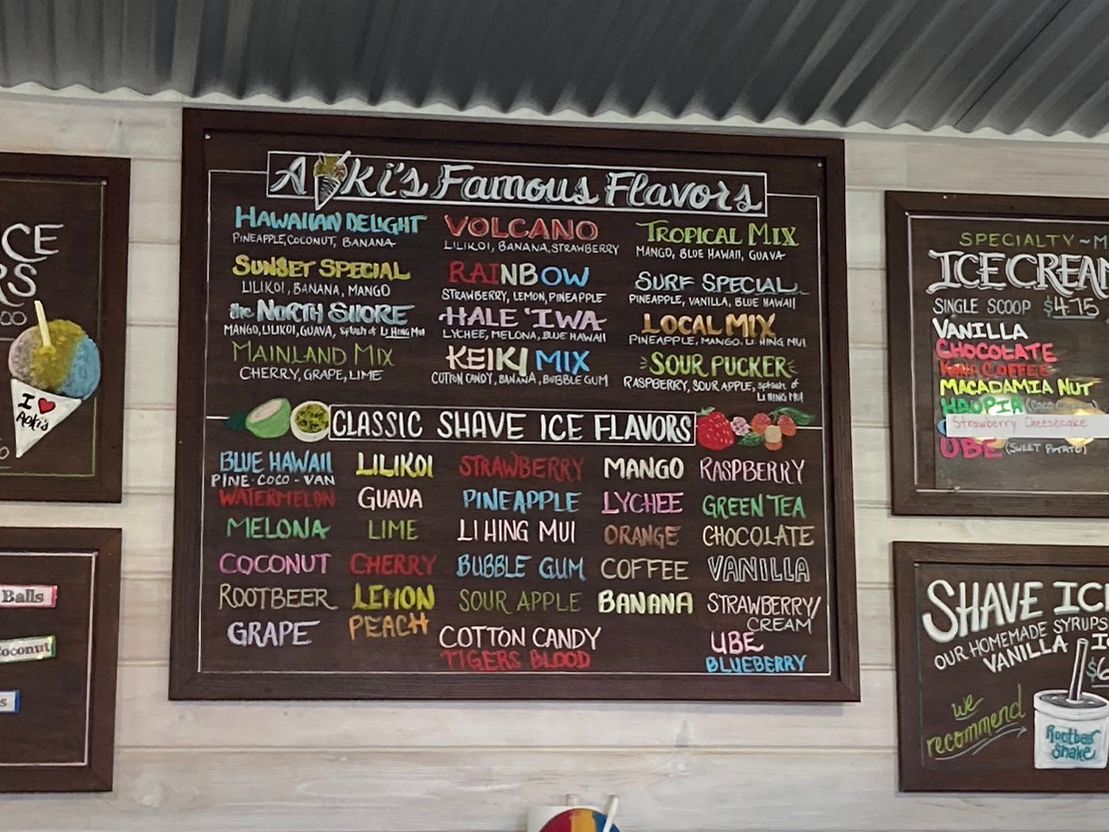 CE
RS
00
I ♥
Aoki's
Balls
Coconut
s
Aoki's Famous Flavors
HAWAIIAN DELIGHT
PINEAPPLE, COCONUT, BANANA
SUNSET SPECIAL
LILIKOI, BANANA, MANGO
the NORTH SHORE
MANGO, LILIKOI, GUAVA, splash of LI HING MUI
MAINLAND MIX
CHERRY, GRAPE, LIME
VOLCANO
LILIKOI, BANANA, STRAWBERRY
RAINBOW
STRAWBERRY, LEMON, PINEAPPLE
HALE'IWA
LYCHEE, MELONA, BLUE HAWAII
KEIKI MIX
COTTON CANDY, BANANA, BUBBLE GUM
TROPICAL MIX
MANGO, BLUE HAWAII, GUAVA
SURF SPECIAL
PINEAPPLE, VANILLA, BLUE HAWAII
LOCAL MIX
PINEAPPLE, MANGO, LI HING MUI
SOUR PUCKER
RASPBERRY, SOUR APPLE, splash of
LI HING MUI
CLASSIC SHAVE ICE FLAVORS
BLUE HAWAII
PINE-COCO-VAN
WATERMELON
MELONA
COCONUT
ROOTBEER
GRAPE
LILIKOI
GUAVA
LIME
CHERRY
LEMON
PEACH
STRAWBERRY
PINEAPPLE
LI HING MUI
BUBBLE GUM
SOUR APPLE
COTTON CANDY
TIGERS BLOOD
MANGO
LYCHEE
ORANGE
COFFEE
BANANA
RASPBERRY
GREEN TEA
CHOCOLATE
VANILLA
STRAWBERRY/
CREAM
UBE
BLUEBERRY
SPECIALTY ~ M
ICE CREAM
SINGLE SCOOP $4.75
VANILLA
CHOCOLATE
KONA COFFEE
MACADAMIA NUT
HAUPIA
Strawberry Cheesecake
UBE (SWEET POTATO)
SHAVE ICE
OUR HOMEMADE SYRUPS
VANILLA IC
$6
we
recommend
Rootbeer
Shake